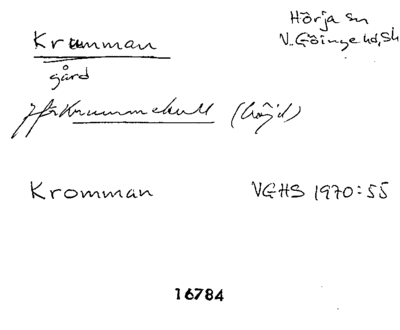 Krumman
Hörja sn
V. Göinge hd, Sk
gård
Jfr Krummekull (höjd)
Kromman
VGHS 1970:55
16784